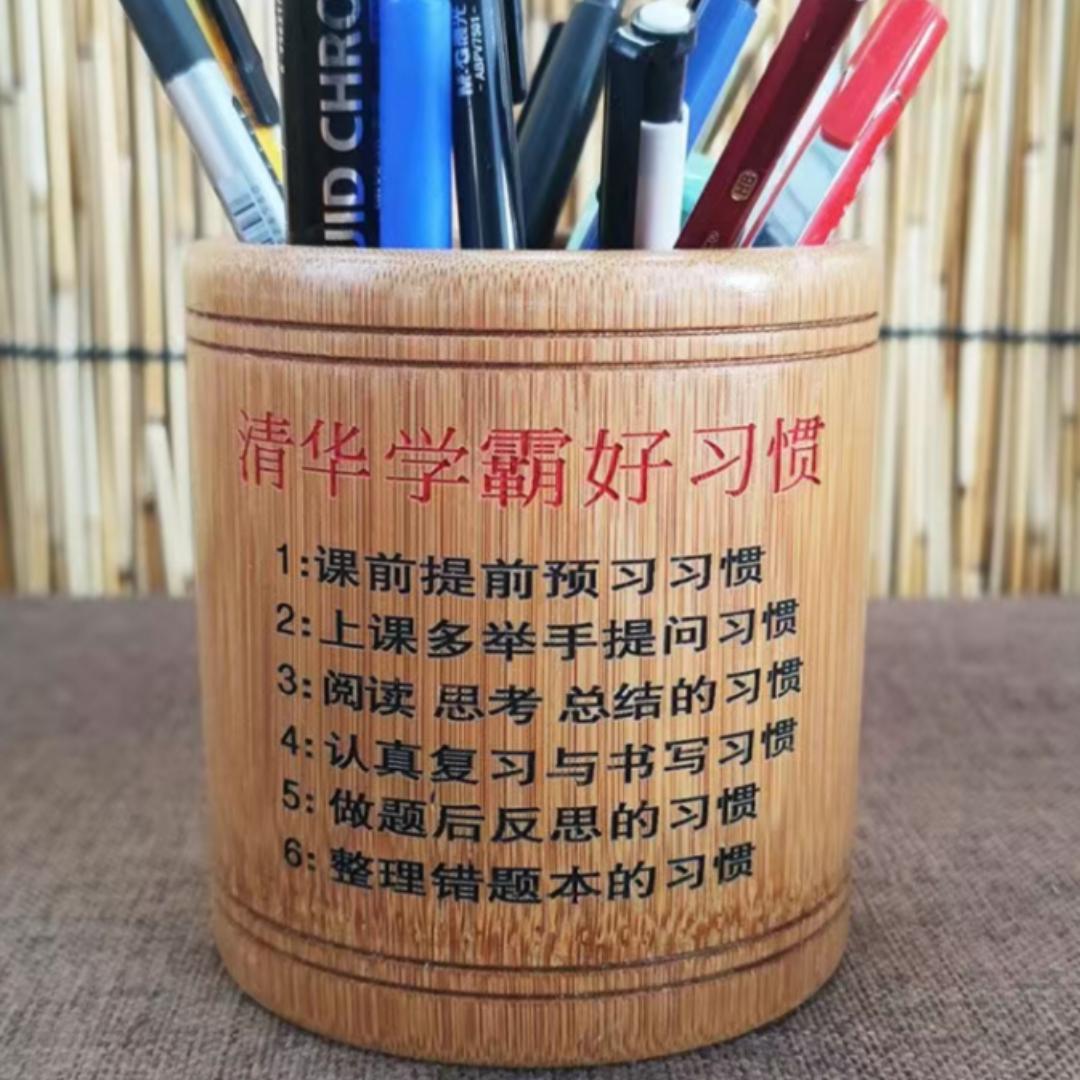 UID CHRO
M&G晨光
- ABPV7501 -
HB
清华学霸好习惯
1:课前提前预习习惯
2:上课多举手提问习惯
3:阅读 思考 总结的习惯
4:认真复习与书写习惯
5:做题后反思的习惯
6:整理错题本的习惯